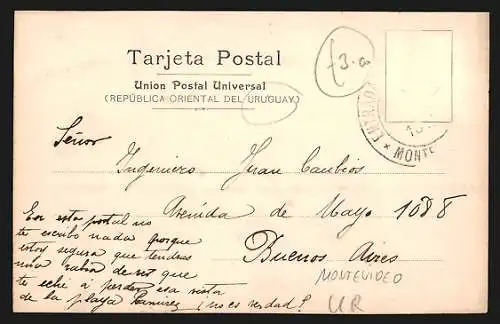 Tarjeta Postal
Union Postal Universal
(REPÚBLICA ORIENTAL DEL URUGUAY)
Señor
Ingeniero Juan
Avenida de Mayo 1088
Buenos Aires
En esta postal no
te escribo nada porque
estoy segura que tendras
una rabia de ver que
te eché á perder esa vista
de la playa Ramirez ¿no es verdad?
MONTEVIDEO
UR
MONTE